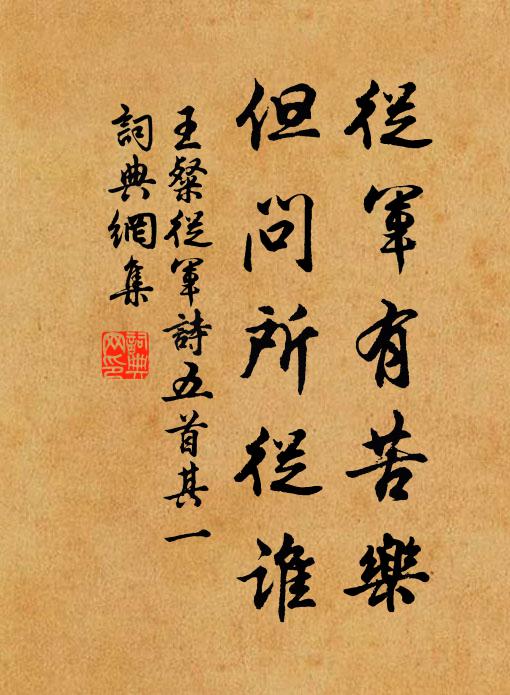 從軍有苦樂
但問所從誰
王粲從軍詩五首其一
詞典網集
詞典
网印